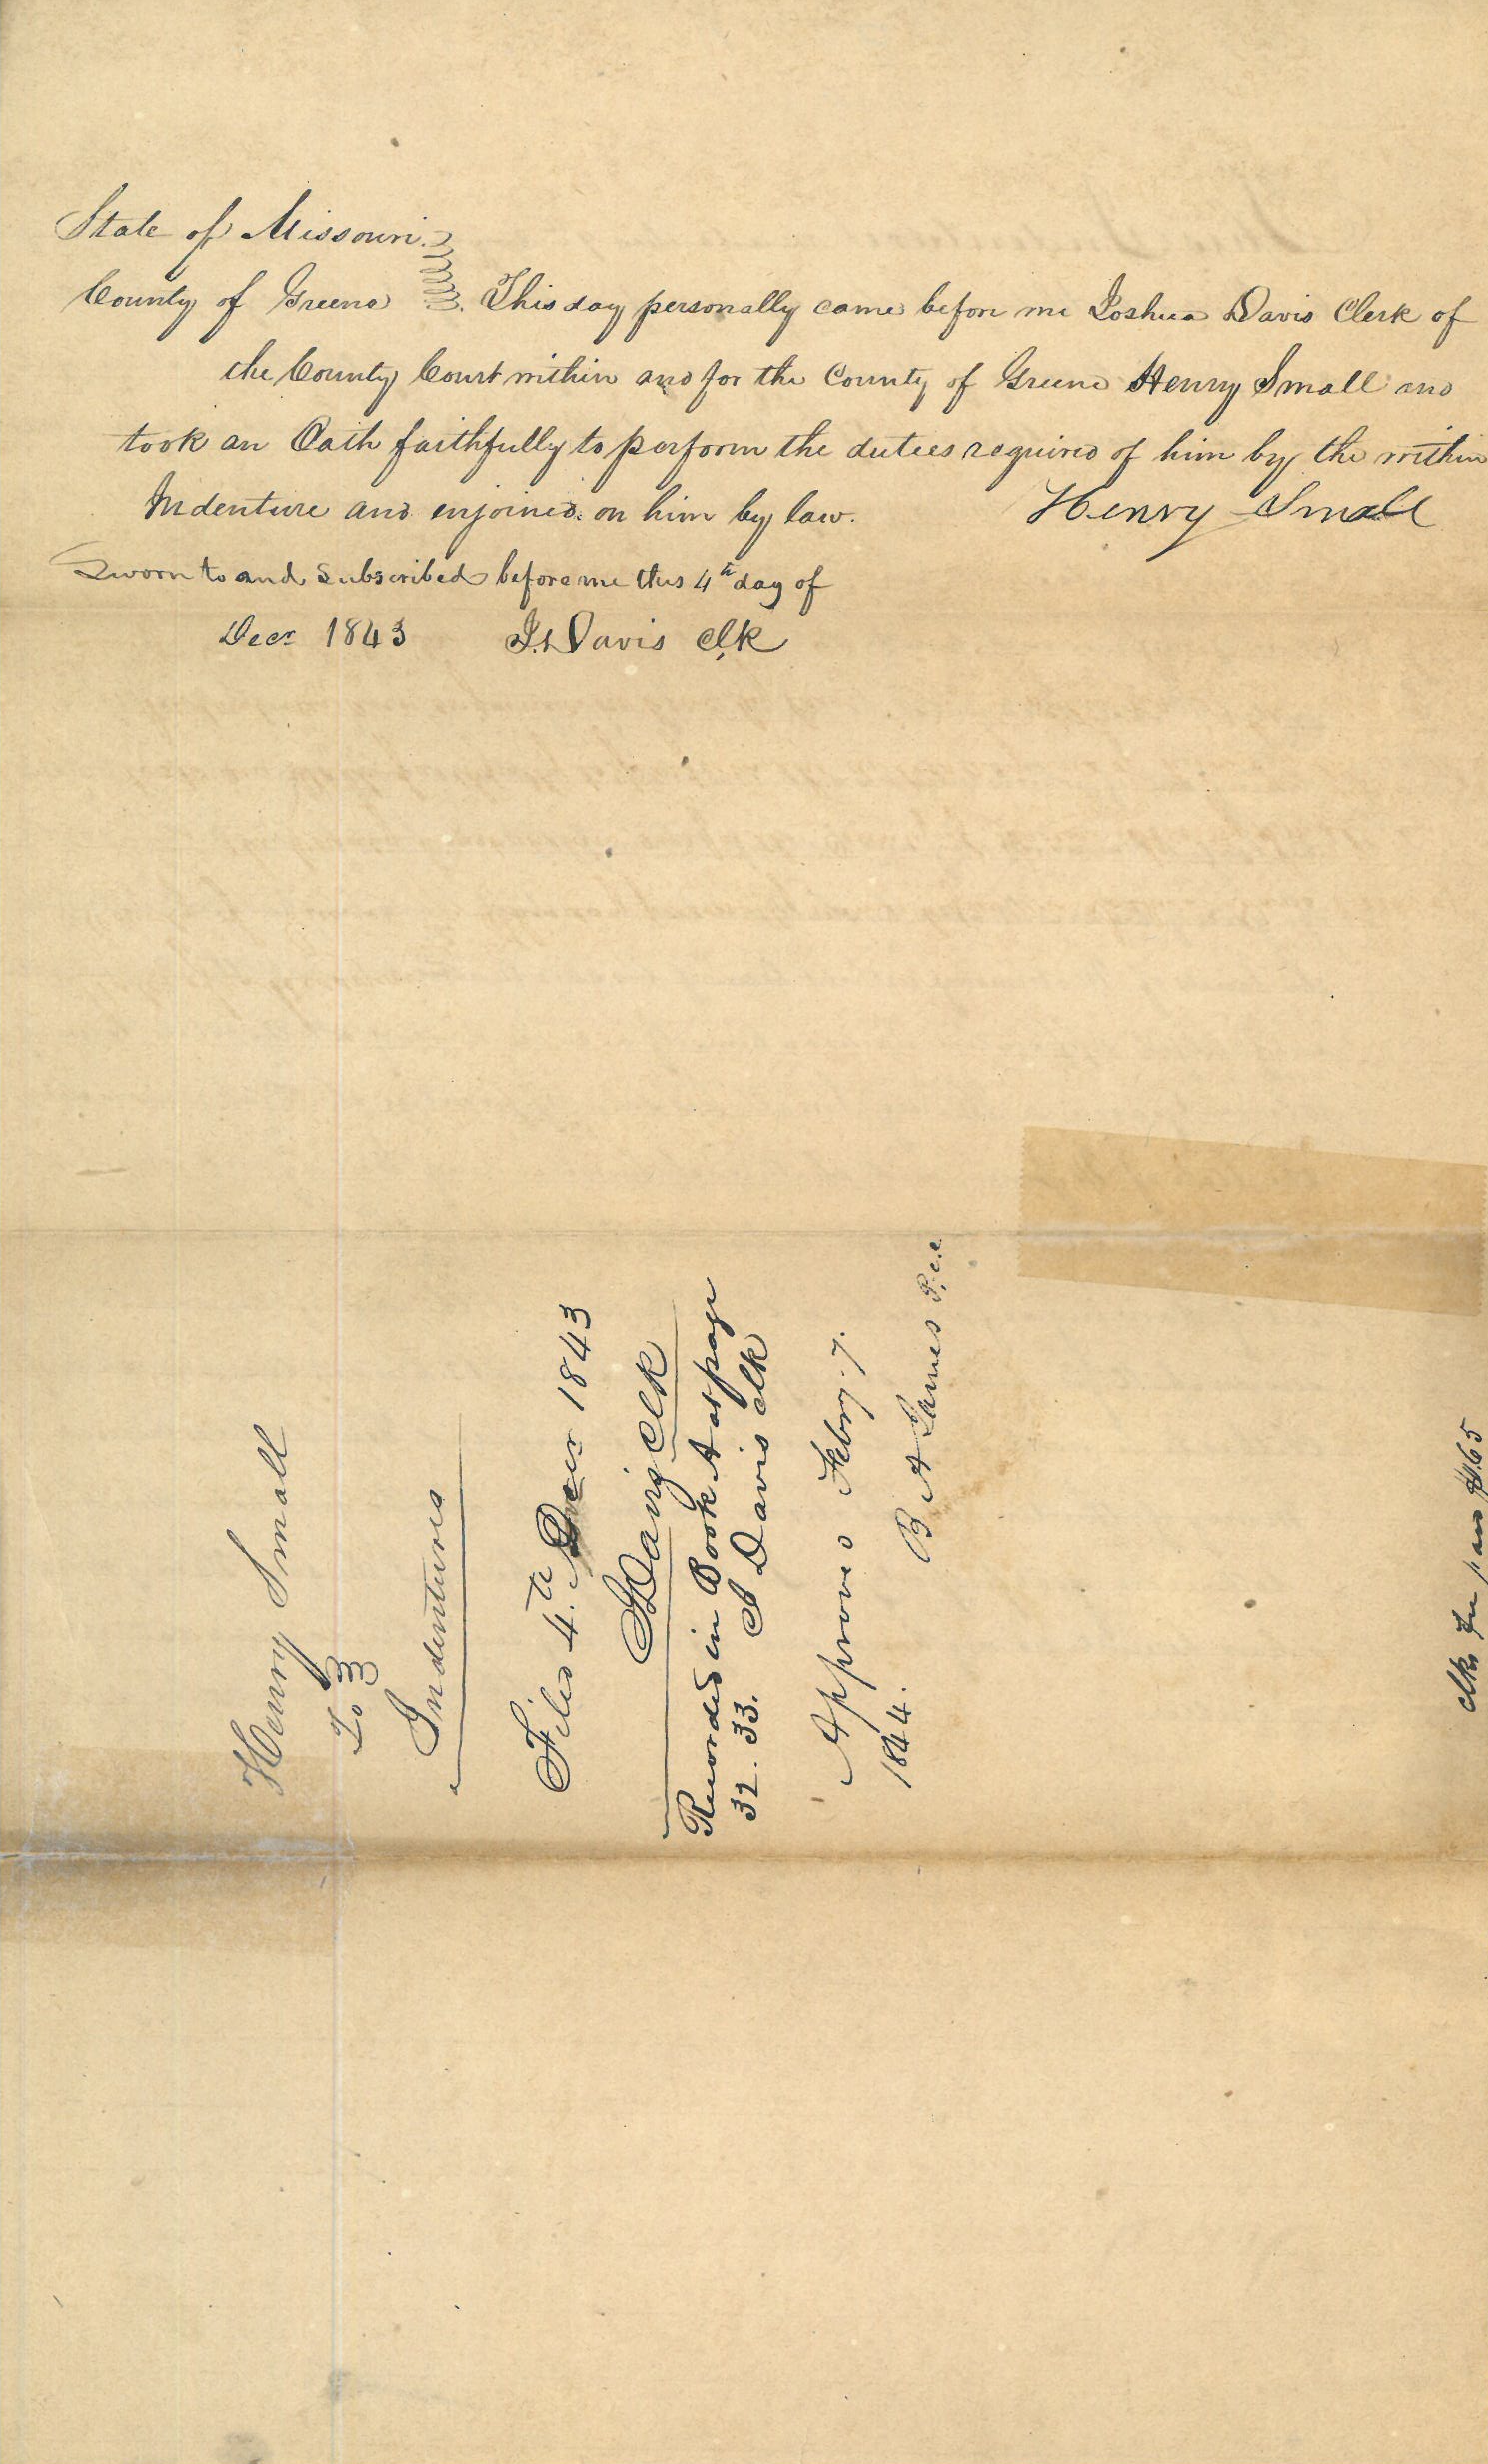 State of Missouri
County of Greene This day personally came before me Joshua Davis Clerk of
the County Court within and for the County of Greene Henry Small and
took an Oath faithfully to perform the dutees required of him by the within
Indenture and enjoined on him by law. Henry Small
Sworn to and Subscribed before me this 4th day of
Decr 1843 J. Davis Clk
Henry Small
To
Indentures
Filed 4th Decr 1843
J Davis Clk
Recorded in Book A at page
32. 33. J Davis clk
Approved Febry 7.
1844. B A James P.c.c.
clks fee paid $1.65